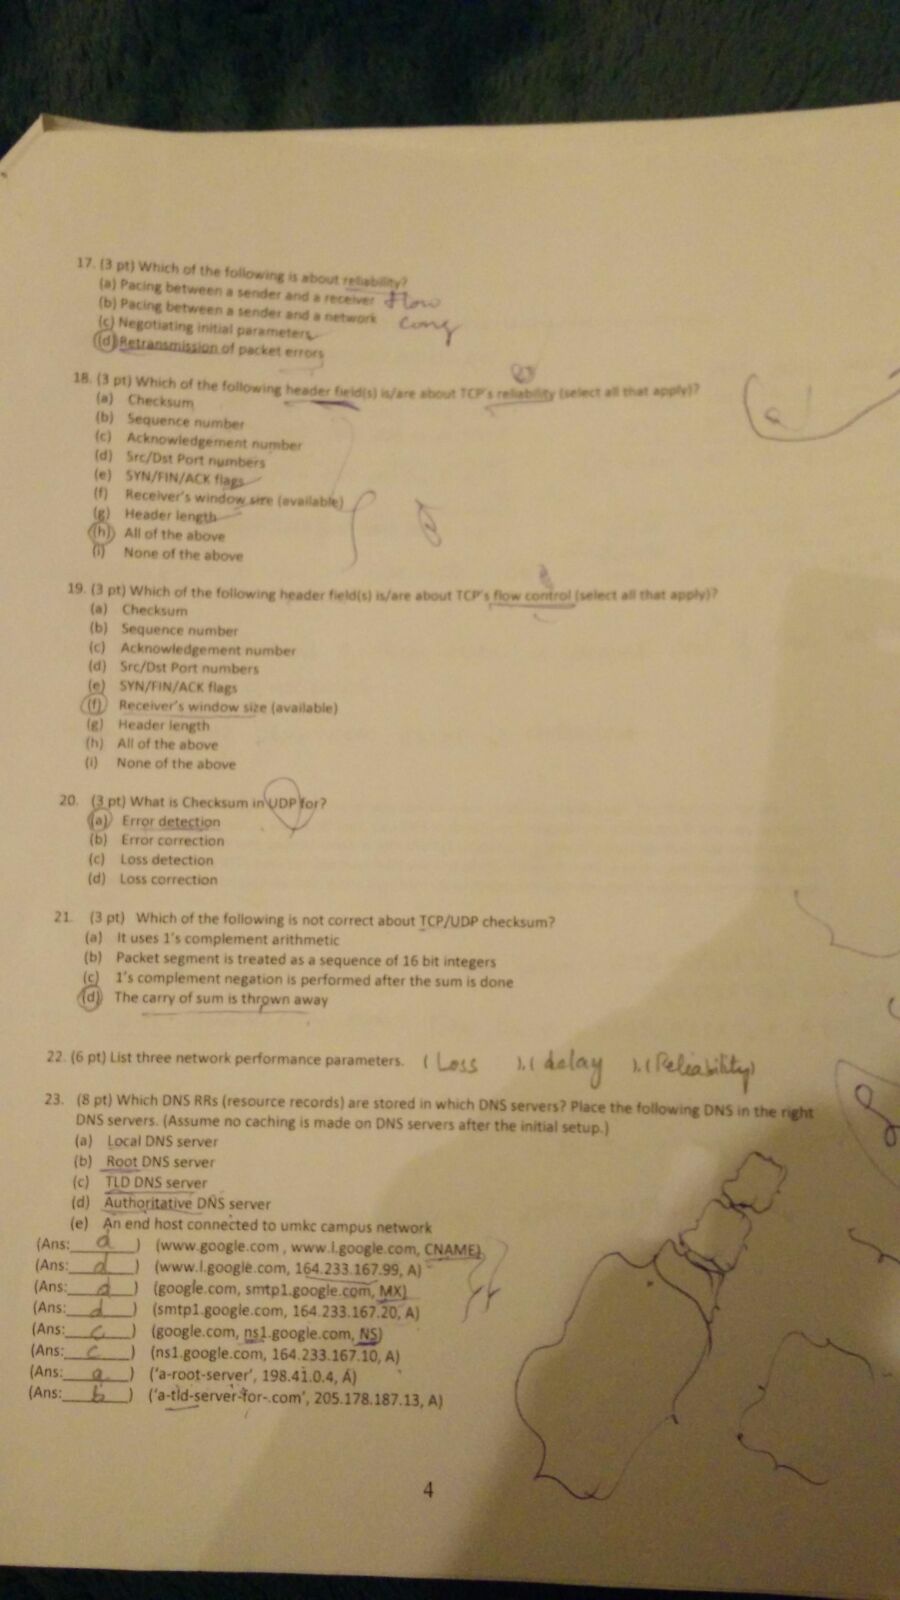 17. (3 pt) Which of the following is about reliability?
(a) Pacing between a sender and a receiver flow
(b) Pacing between a sender and a network cong
(c) Negotiating initial parameters
(d) Retransmission of packet errors
18. (3 pt) Which of the following header field(s) is/are about TCP's reliability (select all that apply)?
(a) Checksum
(b) Sequence number
(c) Acknowledgement number
(d) Src/Dst Port numbers
(e) SYN/FIN/ACK flags
(f) Receiver's window size (available)
(g) Header length
(h) All of the above
(i) None of the above
19. (3 pt) Which of the following header field(s) is/are about TCP's flow control (select all that apply)?
(a) Checksum
(b) Sequence number
(c) Acknowledgement number
(d) Src/Dst Port numbers
(e) SYN/FIN/ACK flags
(f) Receiver's window size (available)
(g) Header length
(h) All of the above
(i) None of the above
20. (3 pt) What is Checksum in UDP for?
(a) Error detection
(b) Error correction
(c) Loss detection
(d) Loss correction
21. (3 pt) Which of the following is not correct about TCP/UDP checksum?
(a) It uses 1's complement arithmetic
(b) Packet segment is treated as a sequence of 16 bit integers
(c) 1's complement negation is performed after the sum is done
(d) The carry of sum is thrown away
22. (6 pt) List three network performance parameters. ( Loss ), ( delay ), ( Reliability)
23. (8 pt) Which DNS RRs (resource records) are stored in which DNS servers? Place the following DNS in the right
DNS servers. (Assume no caching is made on DNS servers after the initial setup.)
(a) Local DNS server
(b) Root DNS server
(c) TLD DNS server
(d) Authoritative DNS server
(e) An end host connected to umkc campus network
(Ans: d ) (www.google.com , www.l.google.com, CNAME)
(Ans: d ) (www.l.google.com, 164.233.167.99, A)
(Ans: d ) (google.com, smtp1.google.com, MX)
(Ans: d ) (smtp1.google.com, 164.233.167.20, A)
(Ans: c ) (google.com, ns1.google.com, NS)
(Ans: c ) (ns1.google.com, 164.233.167.10, A)
(Ans: a ) ('a-root-server', 198.41.0.4, A)
(Ans: b ) ('a-tld-server-for-.com', 205.178.187.13, A)
4